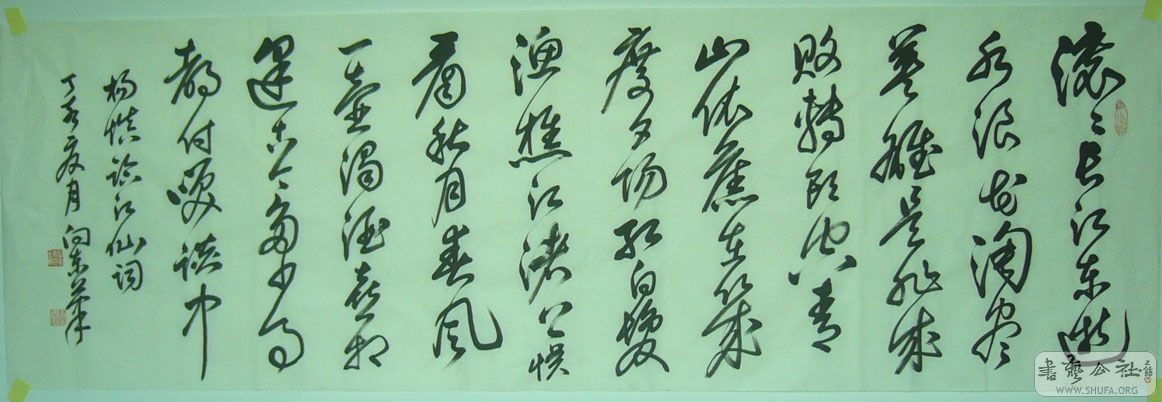 滚〻长江东逝
水浪花淘尽
英雄是非成
败轉头空青
山依舊在几
度夕阳红白髮
渔樵江渚上惯
看秋月春风
一壶濁酒喜相
逢古今多少事
都付笑谈中
杨慎临江仙词
丁亥夏月 向东
書藝公社
WWW.SHUFA.ORG